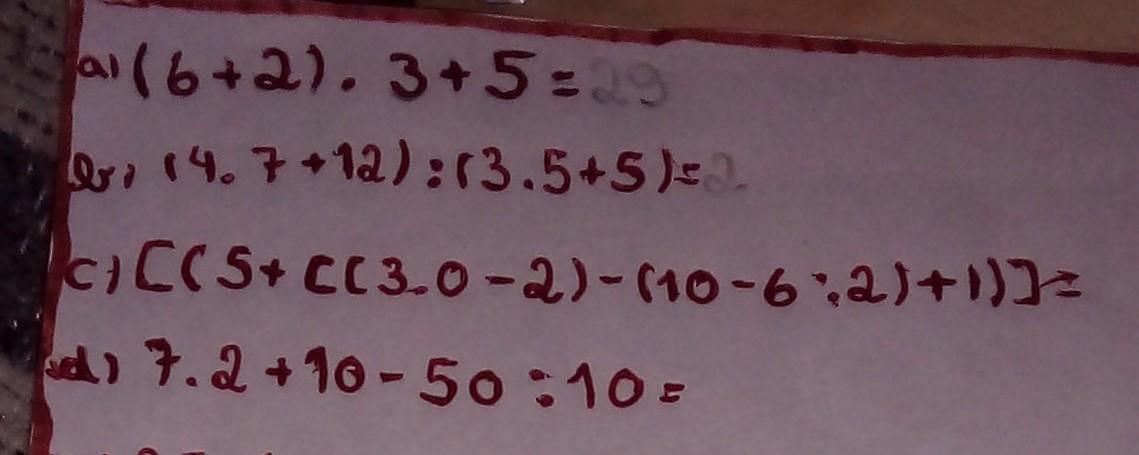 a) (6+2). 3+5=29
b) (4. 7+12):(3.5+5)=2
c) [(5+[(3.0-2)-(10-6:2)+1)]=
d) 7.2+10-50:10=